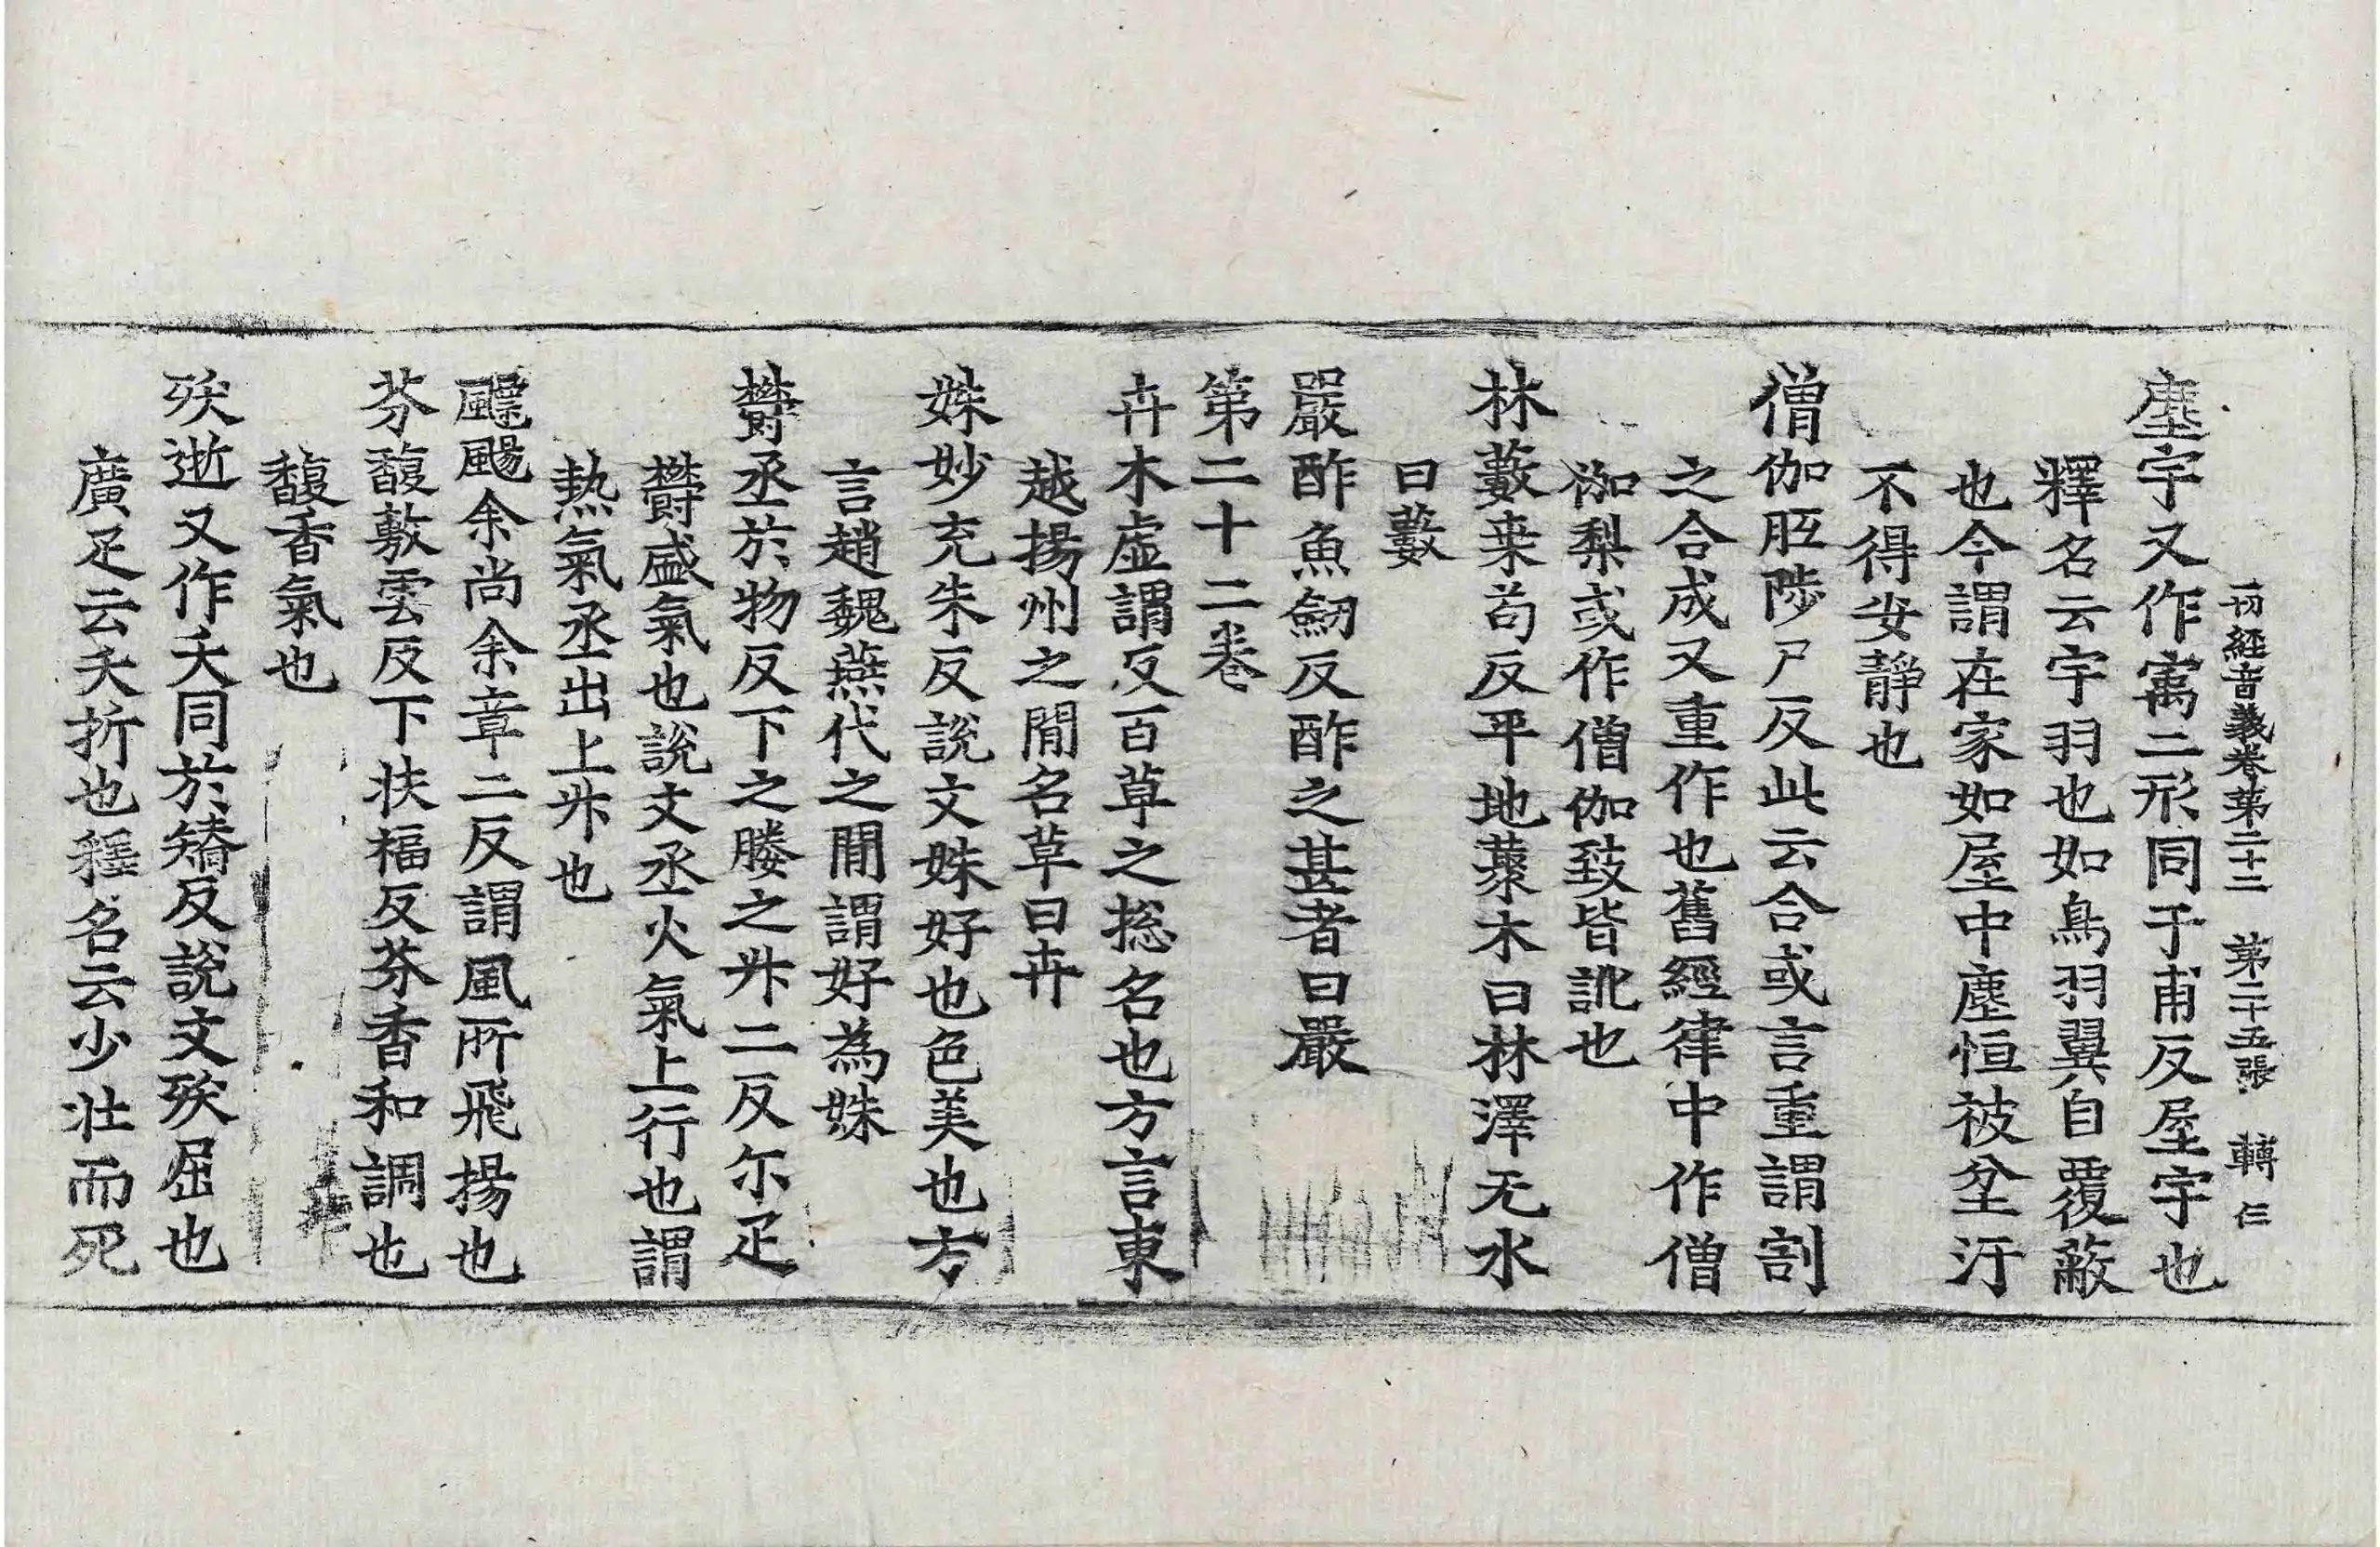 一切經音義卷第二十三 第二十五張 轉 仨
塵宇又作㝢二形同于甫反屋宇也
釋名云宇羽也如鳥羽翼自覆蔽
也今謂在家如屋中塵恒被坌汙
不得安靜也
僧伽胝陟尸反此云合或言重謂割
之合成又重作也舊經律中作僧
伽梨或作僧伽致皆訛也
林藪桒苟反平地藂木曰林澤无水
曰藪
嚴酢魚劒反酢之甚者曰嚴
第二十二卷
卉木虛謂反百草之揔名也方言東
越揚州之閒名草曰卉
姝妙充朱反說文姝好也色美也方
言趙魏燕代之閒謂好為姝
欝烝於物反下之媵之升二反尓疋
欝盛氣也說文烝火氣上行也謂
熱氣烝出上升也
飄颺余尚余章二反謂風所飛揚也
芬馥敷雲反下扶福反芬香和調也
馥香氣也
殀逝又作夭同於矯反說文殀屈也
廣疋云夭折也釋名云少壯而死